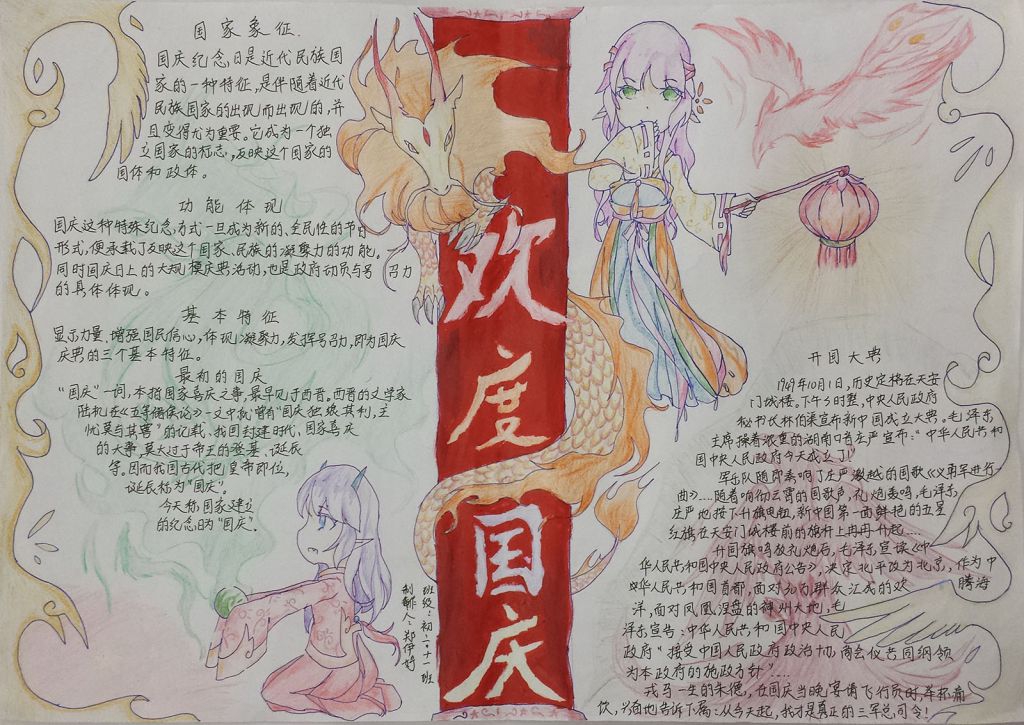 国家象征
国庆纪念日是近代民族国
家的一种特征,是伴随着近代
民族国家的出现而出现的,并
且变得尤为重要。它成为一个独
立国家的标志,反映这个国家的
国体和政体。
功能体现
国庆这种特殊纪念方式一旦成为新的、全民性的节日
形式,便承载了反映这个国家、民族的凝聚力的功能。
同时国庆日上的大规模庆典活动,也是政府动员与号召力
的具体体现。
基本特征
显示力量、增强国民信心,体现凝聚力,发挥号召力,即为国庆
庆典的三个基本特征。
最初的国庆
“国庆”一词,本指国家喜庆之事,最早见于西晋。西晋的文学家
陆机在《五等诸侯论》一文中就曾有“国庆独飨其利,主
忧莫与其害”的记载、我国封建时代、国家喜庆
的大事,莫大过于帝王的登基、诞辰
等。因而我国古代把皇帝即位,
诞辰称为“国庆”。
今天称国家建立
的纪念日为“国庆”。
欢度国庆
班级:初二·十一班
制作人:郑伊婷
开国大典
1949年10月1日,历史定格在天安
门城楼。下午3时整,中央人民政府
秘书长林伯渠宣布新中国成立大典。毛泽东
主席操着浓重的湖南口音庄严宣布:“中华人民共和
国中央人民政府今天成立了!”
军乐队随即奏响了庄严激越的国歌《义勇军进行
曲》....随着响彻云霄的国歌声,礼炮轰鸣,毛泽东
庄严地按下升旗电钮,新中国第一面鲜艳的五星
红旗在天安门城楼前的旗杆上冉冉升起....
升国旗鸣放礼炮后,毛泽东宣读《中
华人民共和国中央人民政府公告》,决定北平改为北京,作为中
华人民共和国首都,面对几万群众汇成的欢腾海
洋,面对凤凰涅盘的神州大地,毛
泽东宣告:中华人民共和国中央人民
政府“接受中国人民政府政治协商会议共同纲领
为本政府的施政方针”.....
戎马一生的朱德,在国庆当晚宴请飞行员时,举杯痛
饮,兴奋地告诉下属:从今天起,我才是真正的三军总司令!